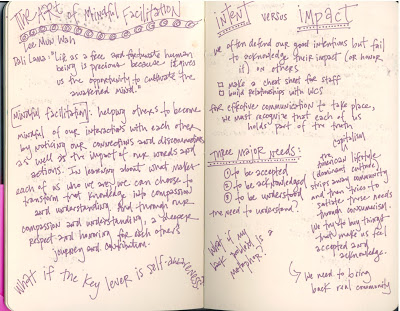 THE ART of Mindful Facilitation
Lee Mun Wah
Dali Lama: "Life as a free and fortunate human
being is precious because it gives
us the opportunity to cultivate the
awakened mind."
Mindful facilitation: helping others to become
mindful of our interactions with each other
by noticing our connections and disconnections
as well as the impact of our words and
actions. In learning about what makes
each of us who we are, we can choose to
transform that knowledge into compassion
and understanding and through our
compassion and understanding, a deeper
respect and honoring for each others
journey and contribution.
What if the key lever is self-awareness?
INTENT versus IMPACT
we often defend our good intentions but fail
to acknowledge their impact (or honor
it) on others
make a cheat sheet for staff
build relationships with UCS
for effective communication to take place,
we must recognize that each of us
holds part of the truth
THREE MAJOR NEEDS:
① to be accepted
② to be acknowledged
③ to be understood
the need to understand?
What if my
back is
metaphor?
capitalism
American lifestyle
(dominant culture)
strips away community
and then tries to
satiate these needs
through consumerism.
We try to buy things
that make us feel
accepted and
acknowledge.
↳ we need to bring
back real community